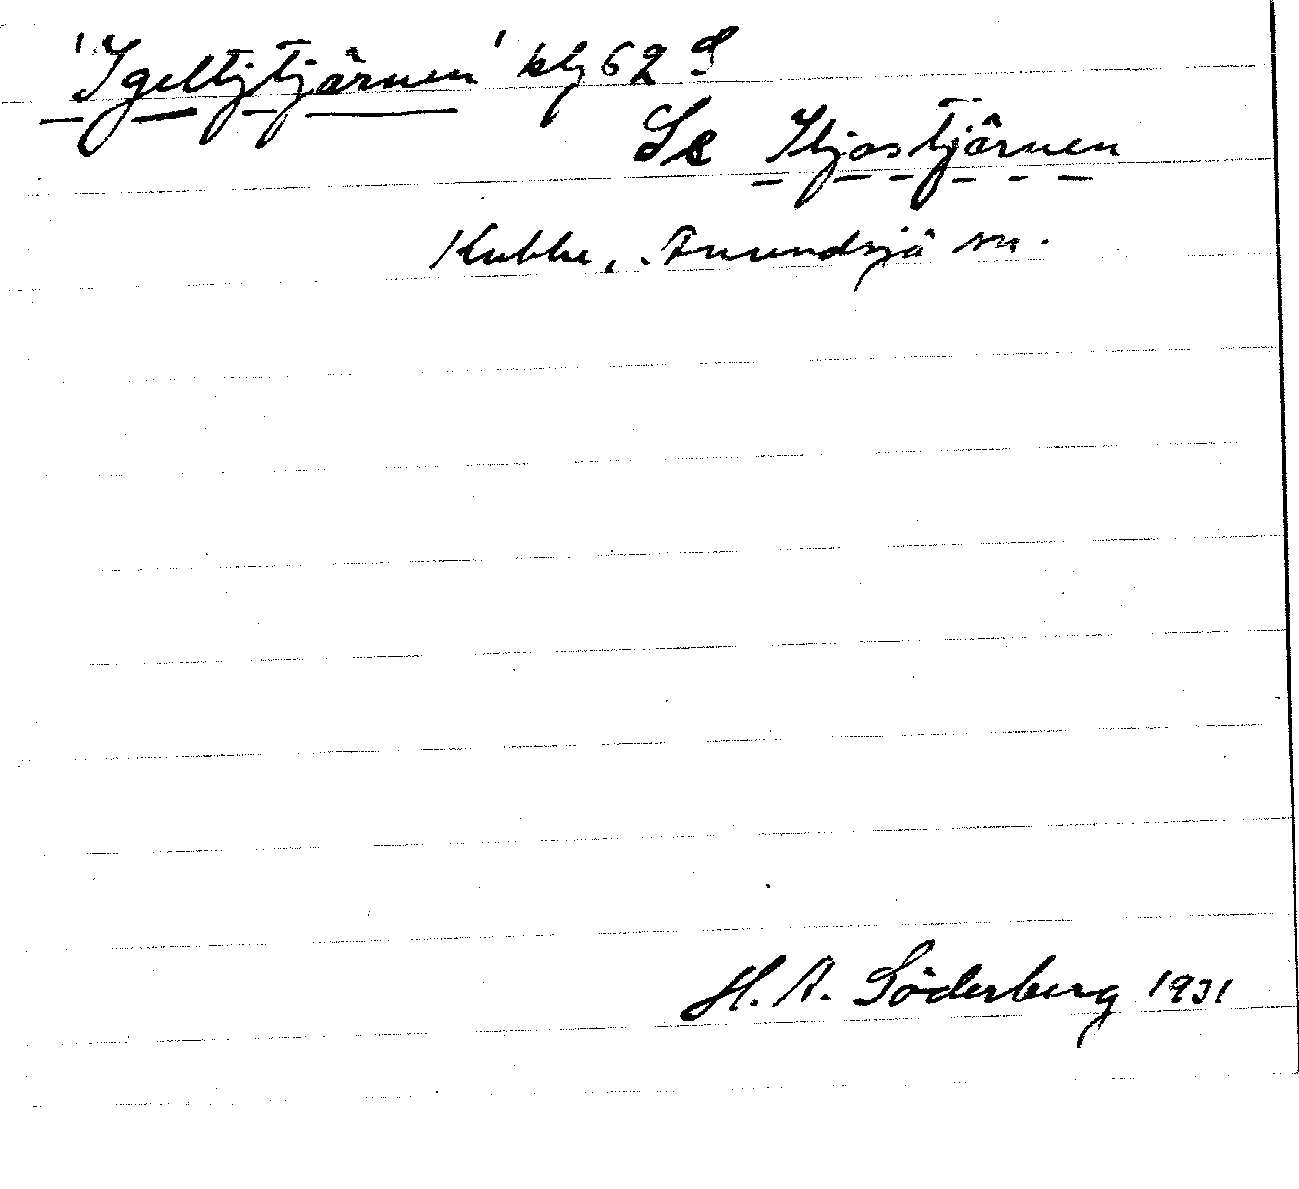 'Igeltjtjärnen' kbg 62 S
Se Styjostjärnen
Kubbe, Anundsjö sn.
H. A. Söderberg 1931